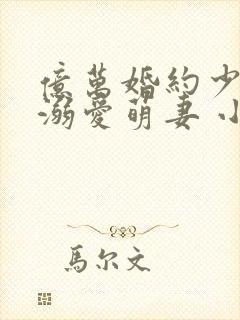 億萬婚約少
溺愛萌妻小
馬尔文